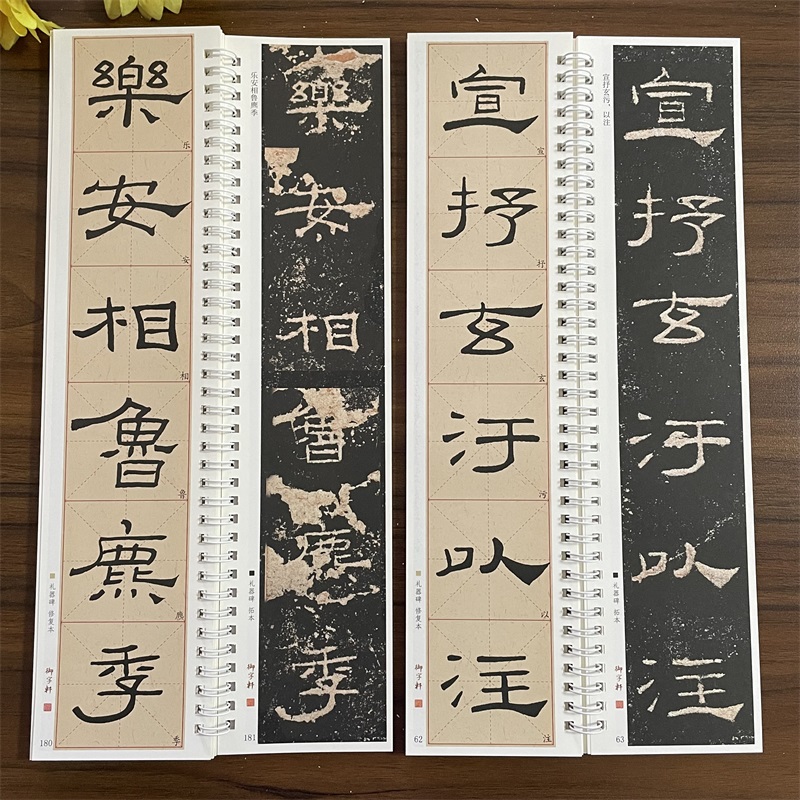 樂安相魯麃季
乐
安
相
鲁
季
礼器碑 修复本
御字轩
180
乐安相鲁麃季
樂安相魯麃季
礼器碑 拓本
御字轩
181
宣抒玄汙以注
宣
抒
玄
污
以
注
礼器碑 修复本
御字轩
62
宣抒玄污，以注
宣抒玄汙以注
礼器碑 拓本
御字轩
63